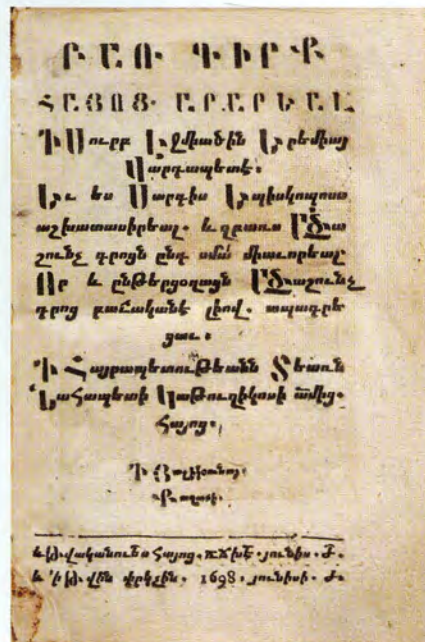 ԲԱՌ ԳԻՐՔ
ՀԱՅՈՑ. ԱՐԱՐԵԱԼ
Ի Սուրբ Էջմիածին Երեմիայ
Վարդապետէ.
Եւ ես Սարգիս Եպիսկոպոսս
աշխատասիրեալ. և զբառս Ածա
շունչ գրոցն ընդ սմա միաւորեալ
Որ և ընթերցօղացն Ածաշունչ
գրոց բաւականէ լիով. տպագրե
ցաւ.
Ի Հայրապետութեանն Տեառն
Նահապետի Կաթուղիկոսի ամից.
Հայոց.
Քաղաքի.
և թվականուես Հայոց. ՌՃԽԷ. յունիս. Ժ.
և ի թվին փրկչին. 1698. յունիսի. Ժ.